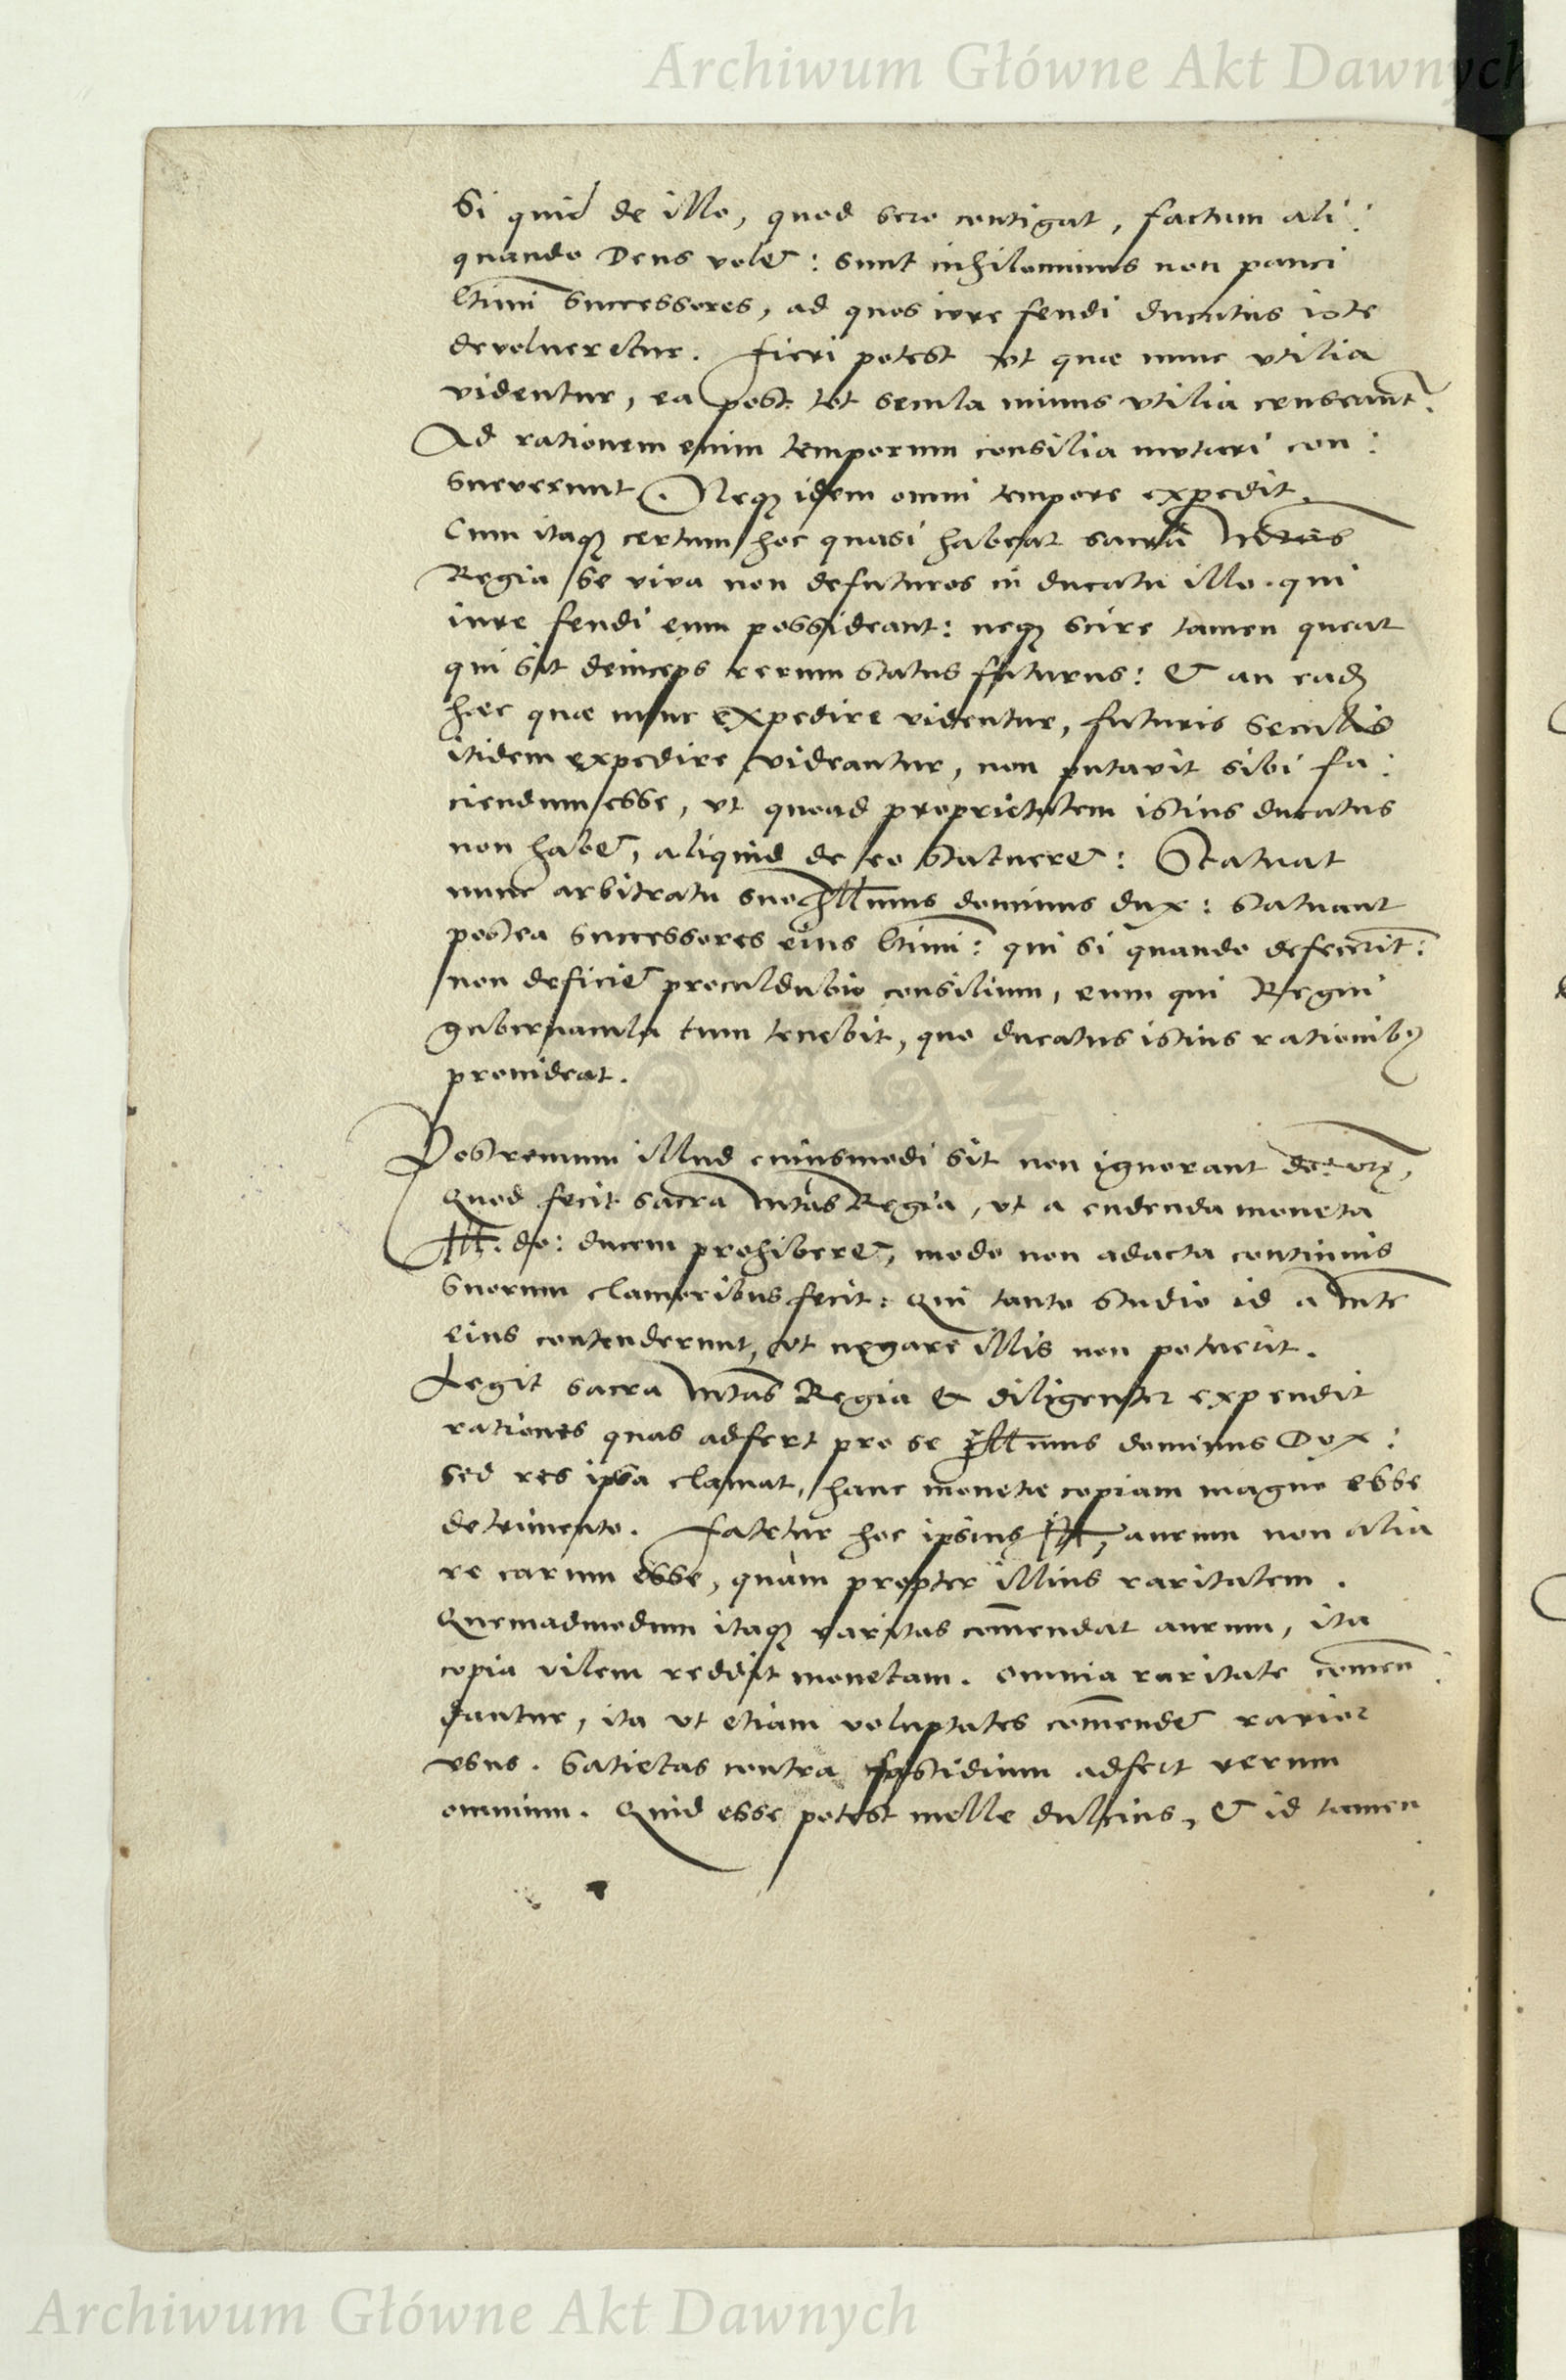 Archiwum Główne Akt Dawnych
Si quid de illo, quod sero contigat, factum ali:
quando Deus volet: sunt nihilominus non pauci
ltimi successores, ad quos iure feudi ducatus iste
devolueretur. Fieri potest vt quae nunc vtilia
videntur, ea post tot secula minus vtilia censeant.
Ad rationem enim temporum consilia mutari con:
sueverunt. Neq idem omni tempore expedit.
Cum itaq certum hoc quasi habeat sacra Mtas
Regia se viva non defuturos in ducatu illo qui
iure feudi eum possideant: neq scire tamen queat
qui sit deinceps rerum status futurus: & an ead
haec quae nunc expedire videntur, futuris seculis
itidem expedire videantur, non putavit sibi fa:
ciendum esse, vt quoad proprietatem istius ducatus
non habet, aliquid de eo statueret: Statuat
nunc arbitratu suo Illmus dominus dux: statuant
postea successores eius ltimi: qui si quando defecerit:
non deficiet proculdubio consilium, eum qui Regni
gubernacula tum tenebit, quo ducatus istius rationib
provideat.
Postremum illud cuiusmodi sit non ignorant
Quod fecit sacra Mtas Regia, vt a cudenda moneta
Ill. do: ducem prohiberet, modo non adacta continuis
suorum clamoribus fecit: Qui tanto studio id a Mte
eius contenderunt, vt negare illis non potuerit.
Legit sacra Mtas Regia & diligenter expendit
rationes quas adfert pro se Illmus dominus Dux:
sed res ipsa clamat, hanc monetae copiam magno esse
detrimento. Fatetur hoc ipsius Ill, aurum non alia
re carum esse, quàm propter illius raritatem.
Quemadmodum itaq raritas comendat aurum, ita
copia vilem reddit monetam. omnia raritate comen:
dantur, ita vt etiam voluptates comendet rarior
vsus. Satietas contra fastidium adfert rerum
omnium. Quid esse potest melle dulcius, & id tamen
Archiwum Główne Akt Dawnych